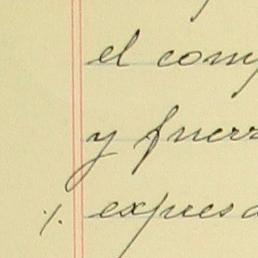 el comp
y fuerz
·/. expresa